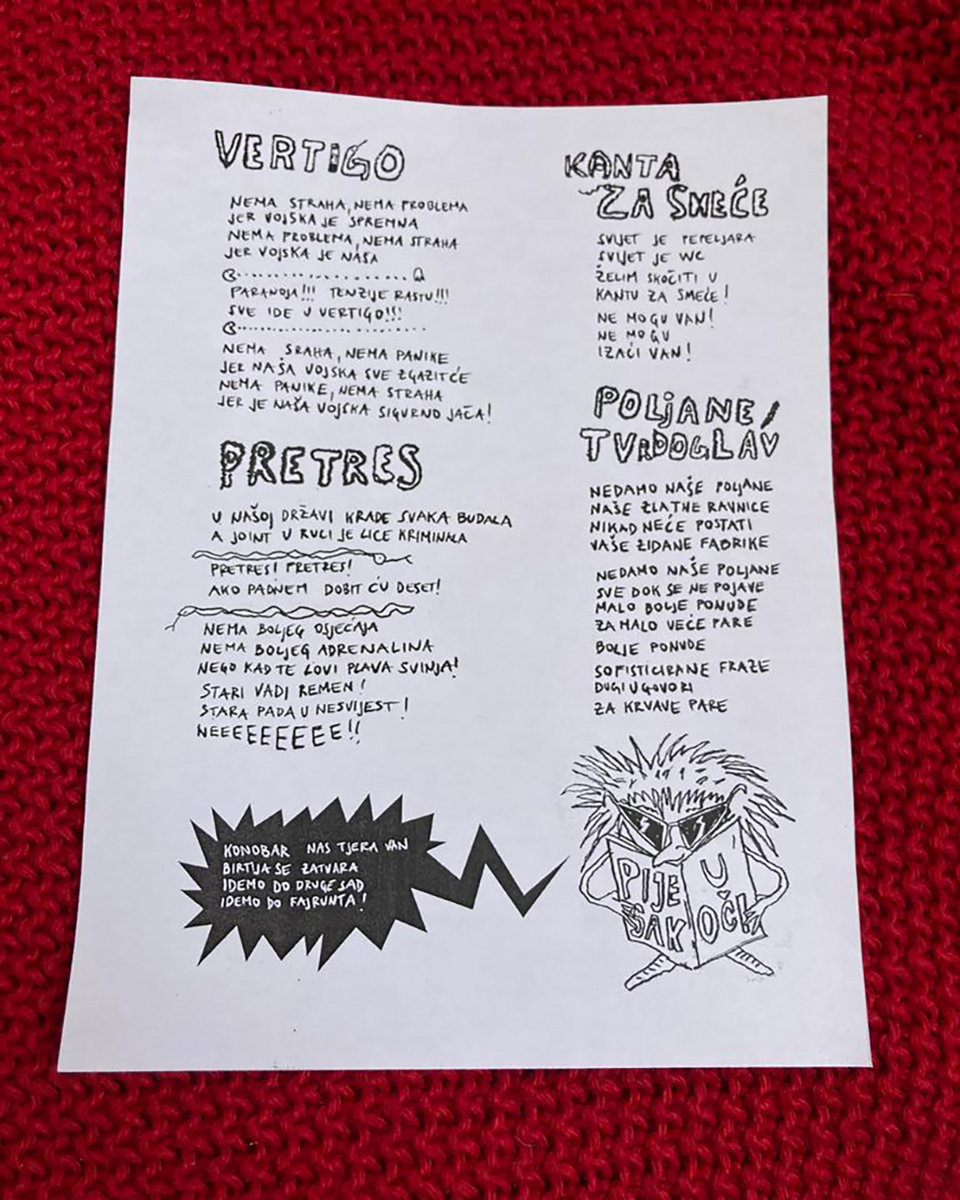 VERTIGO
NEMA STRAHA, NEMA PROBLEMA
JER VOJSKA JE SPREMNA
NEMA PROBLEMA, NEMA STRAHA
JER VOJSKA JE NAŠA
PARANOJA!!! TENZIJE RASTU!!!
SVE IDE U VERTIGO!!!
NEMA SRAHA, NEMA PANIKE
JER NAŠA VOJSKA SVE ZGAZIT ĆE
NEMA PANIKE, NEMA STRAHA
JER JE NAŠA VOJSKA SIGURNO JAČA!
PRETRES
U NAŠOJ DRŽAVI KRADE SVAKA BUDALA
A JOINT U RUCI JE LICE KRIMINALA
PRETRES! PRETRES!
AKO PADNEM DOBIT ĆU DESET!
NEMA BOLJEG OSJEĆAJA
NEMA BOLJEG ADRENALINA
NEGO KAD TE LOVI PLAVA SVINJA!
STARI VADI REMEN!
STARA PADA U NESVIJEST!
NEEEEEEEEE!!
KONOBAR NAS TJERA VAN
BIRTIJA SE ZATVARA
IDEMO DO DRUGE SAD
IDEMO DO FAJRUNTA!
KANTA
ZA SMEĆE
SVIJET JE PEPELJARA
SVIJET JE WC
ŽELIM SKOČITI U
KANTU ZA SMEĆE!
NE MOGU VAN!
NE MOGU
IZAĆI VAN!
POLJANE/
TVRDOGLAV
NEDAMO NAŠE POLJANE
NAŠE ZLATNE RAVNICE
NIKAD NEĆE POSTATI
VAŠE ZIDANE FABRIKE
NEDAMO NAŠE POLJANE
SVE DOK SE NE POJAVE
MALO BOLJE PONUDE
ZA MALO VEĆE PARE
BOLJE PONUDE
SOFISTICIRANE FRAZE
DUGI UGOVORI
ZA KRVAVE PARE
PIJE
SAK
U
OČI!